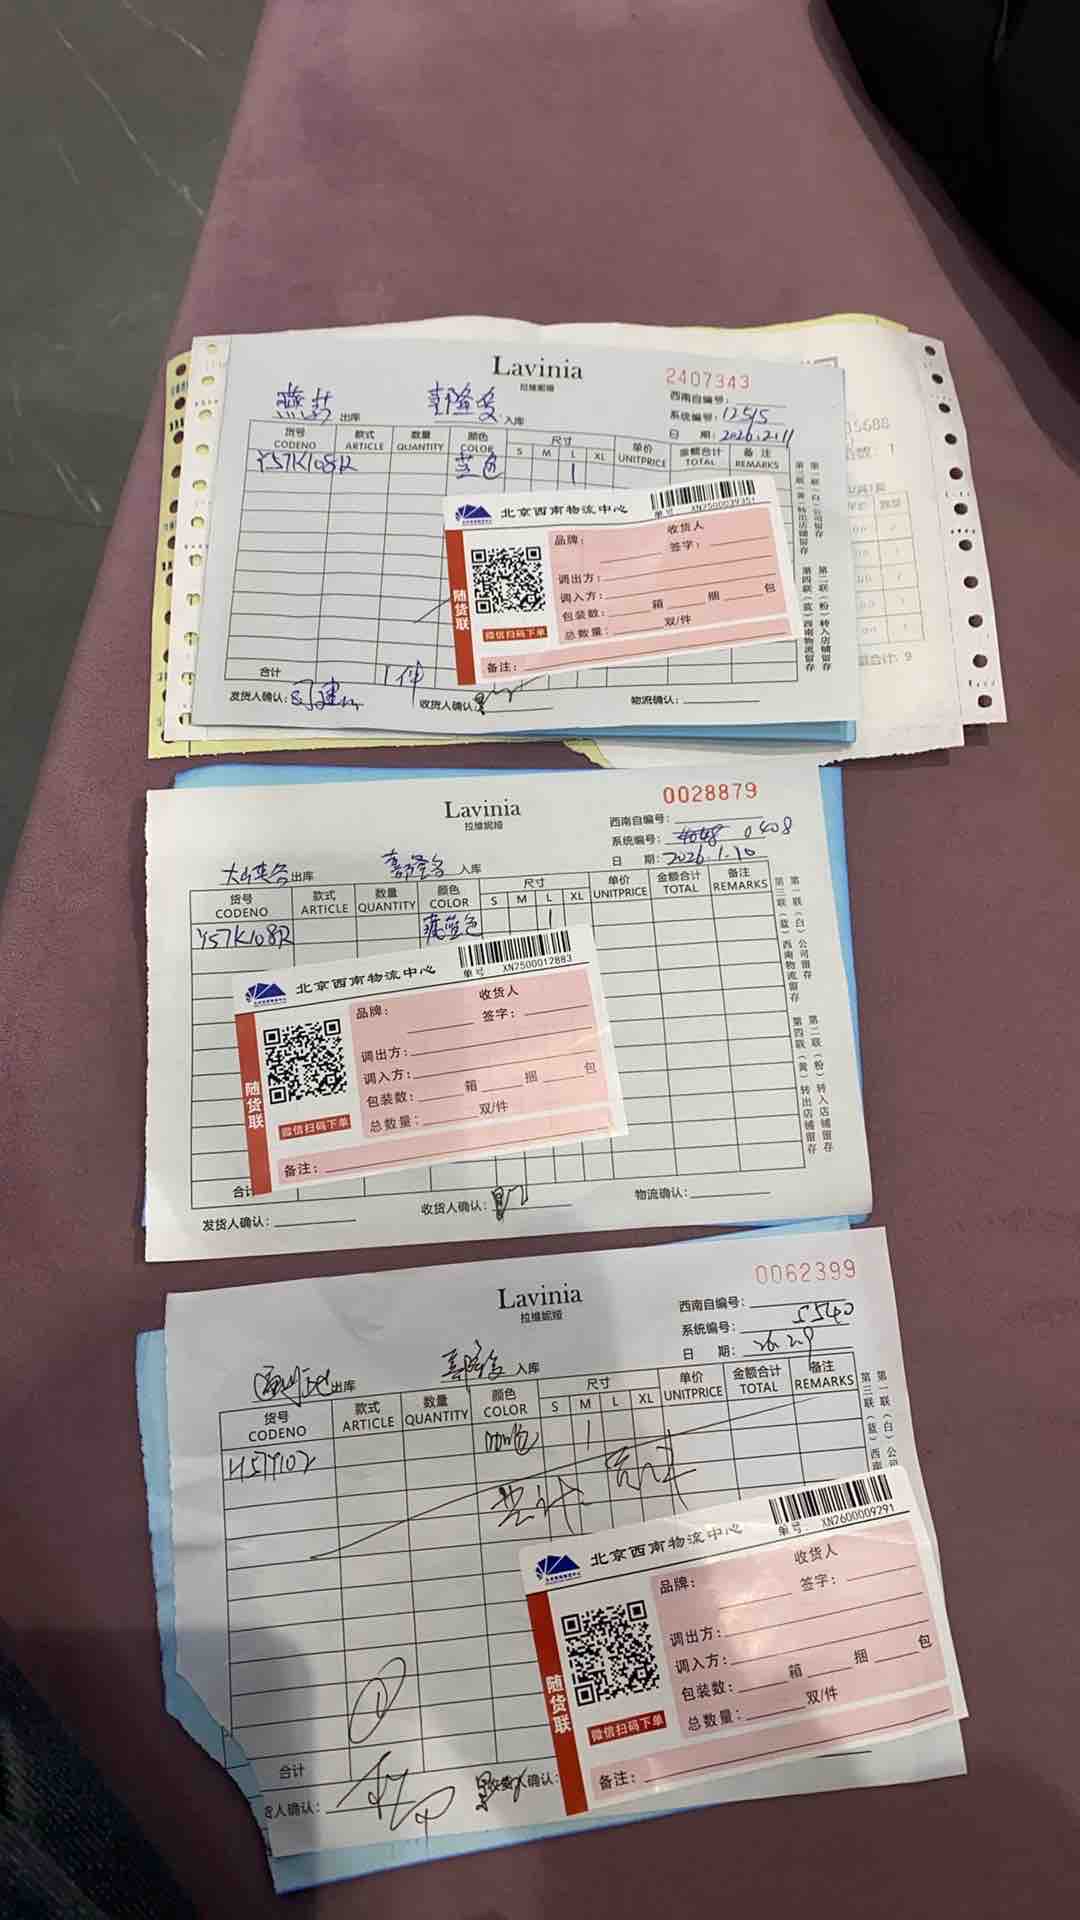 Lavinia
拉维妮娅
2407343
西南自编号:
系统编号: 12515
日 期: 2026.2.11
燕莎 出库 入库
货号 款式 数量 颜色 尺寸 单价 金额合计 备注
CODENO ARTICLE QUANTITY COLOR S M L XL UNITPRICE TOTAL REMARKS
Y57K108R 蓝色 1
北京西南物流中心
单号 XN7500039351
随货联
微信扫码下单
品牌: 收货人
签字:
调出方:
调入方:
包装数: 箱 捆 包
总数量: 双/件
备注:
合计 1件
发货人确认: 收货人确认: 物流确认:
第一联（白）公司留存
第二联（粉）转入店铺留存
第三联（黄）转出店铺留存
第四联（蓝）西南物流留存
5688
数: 1
合计: 9
Lavinia
拉维妮娅
0028879
西南自编号:
系统编号: 0408
日 期: 2026.1.10
出库 入库
货号 款式 数量 颜色 尺寸 单价 金额合计 备注
CODENO ARTICLE QUANTITY COLOR S M L XL UNITPRICE TOTAL REMARKS
Y57K108R 藏蓝色 1
北京西南物流中心
单号 XN7500012883
随货联
微信扫码下单
品牌: 收货人
签字:
调出方:
调入方:
包装数: 箱 捆 包
总数量: 双/件
备注:
合计
发货人确认: 收货人确认: 物流确认:
第一联（白）公司留存
第二联（粉）转入店铺留存
第三联（蓝）西南物流留存
第四联（黄）转出店铺留存
Lavinia
拉维妮娅
0062399
西南自编号:
系统编号: 5540
日 期: 26.2.9
出库 入库
货号 款式 数量 颜色 尺寸 单价 金额合计 备注
CODENO ARTICLE QUANTITY COLOR S M L XL UNITPRICE TOTAL REMARKS
1
北京西南物流中心
单号: XN7600009791
随货联
微信扫码下单
品牌: 收货人
签字:
调出方:
调入方:
包装数: 箱 捆 包
总数量: 双/件
备注:
合计 1
人确认: 确认:
第一联（白）公
第三联（蓝）西南